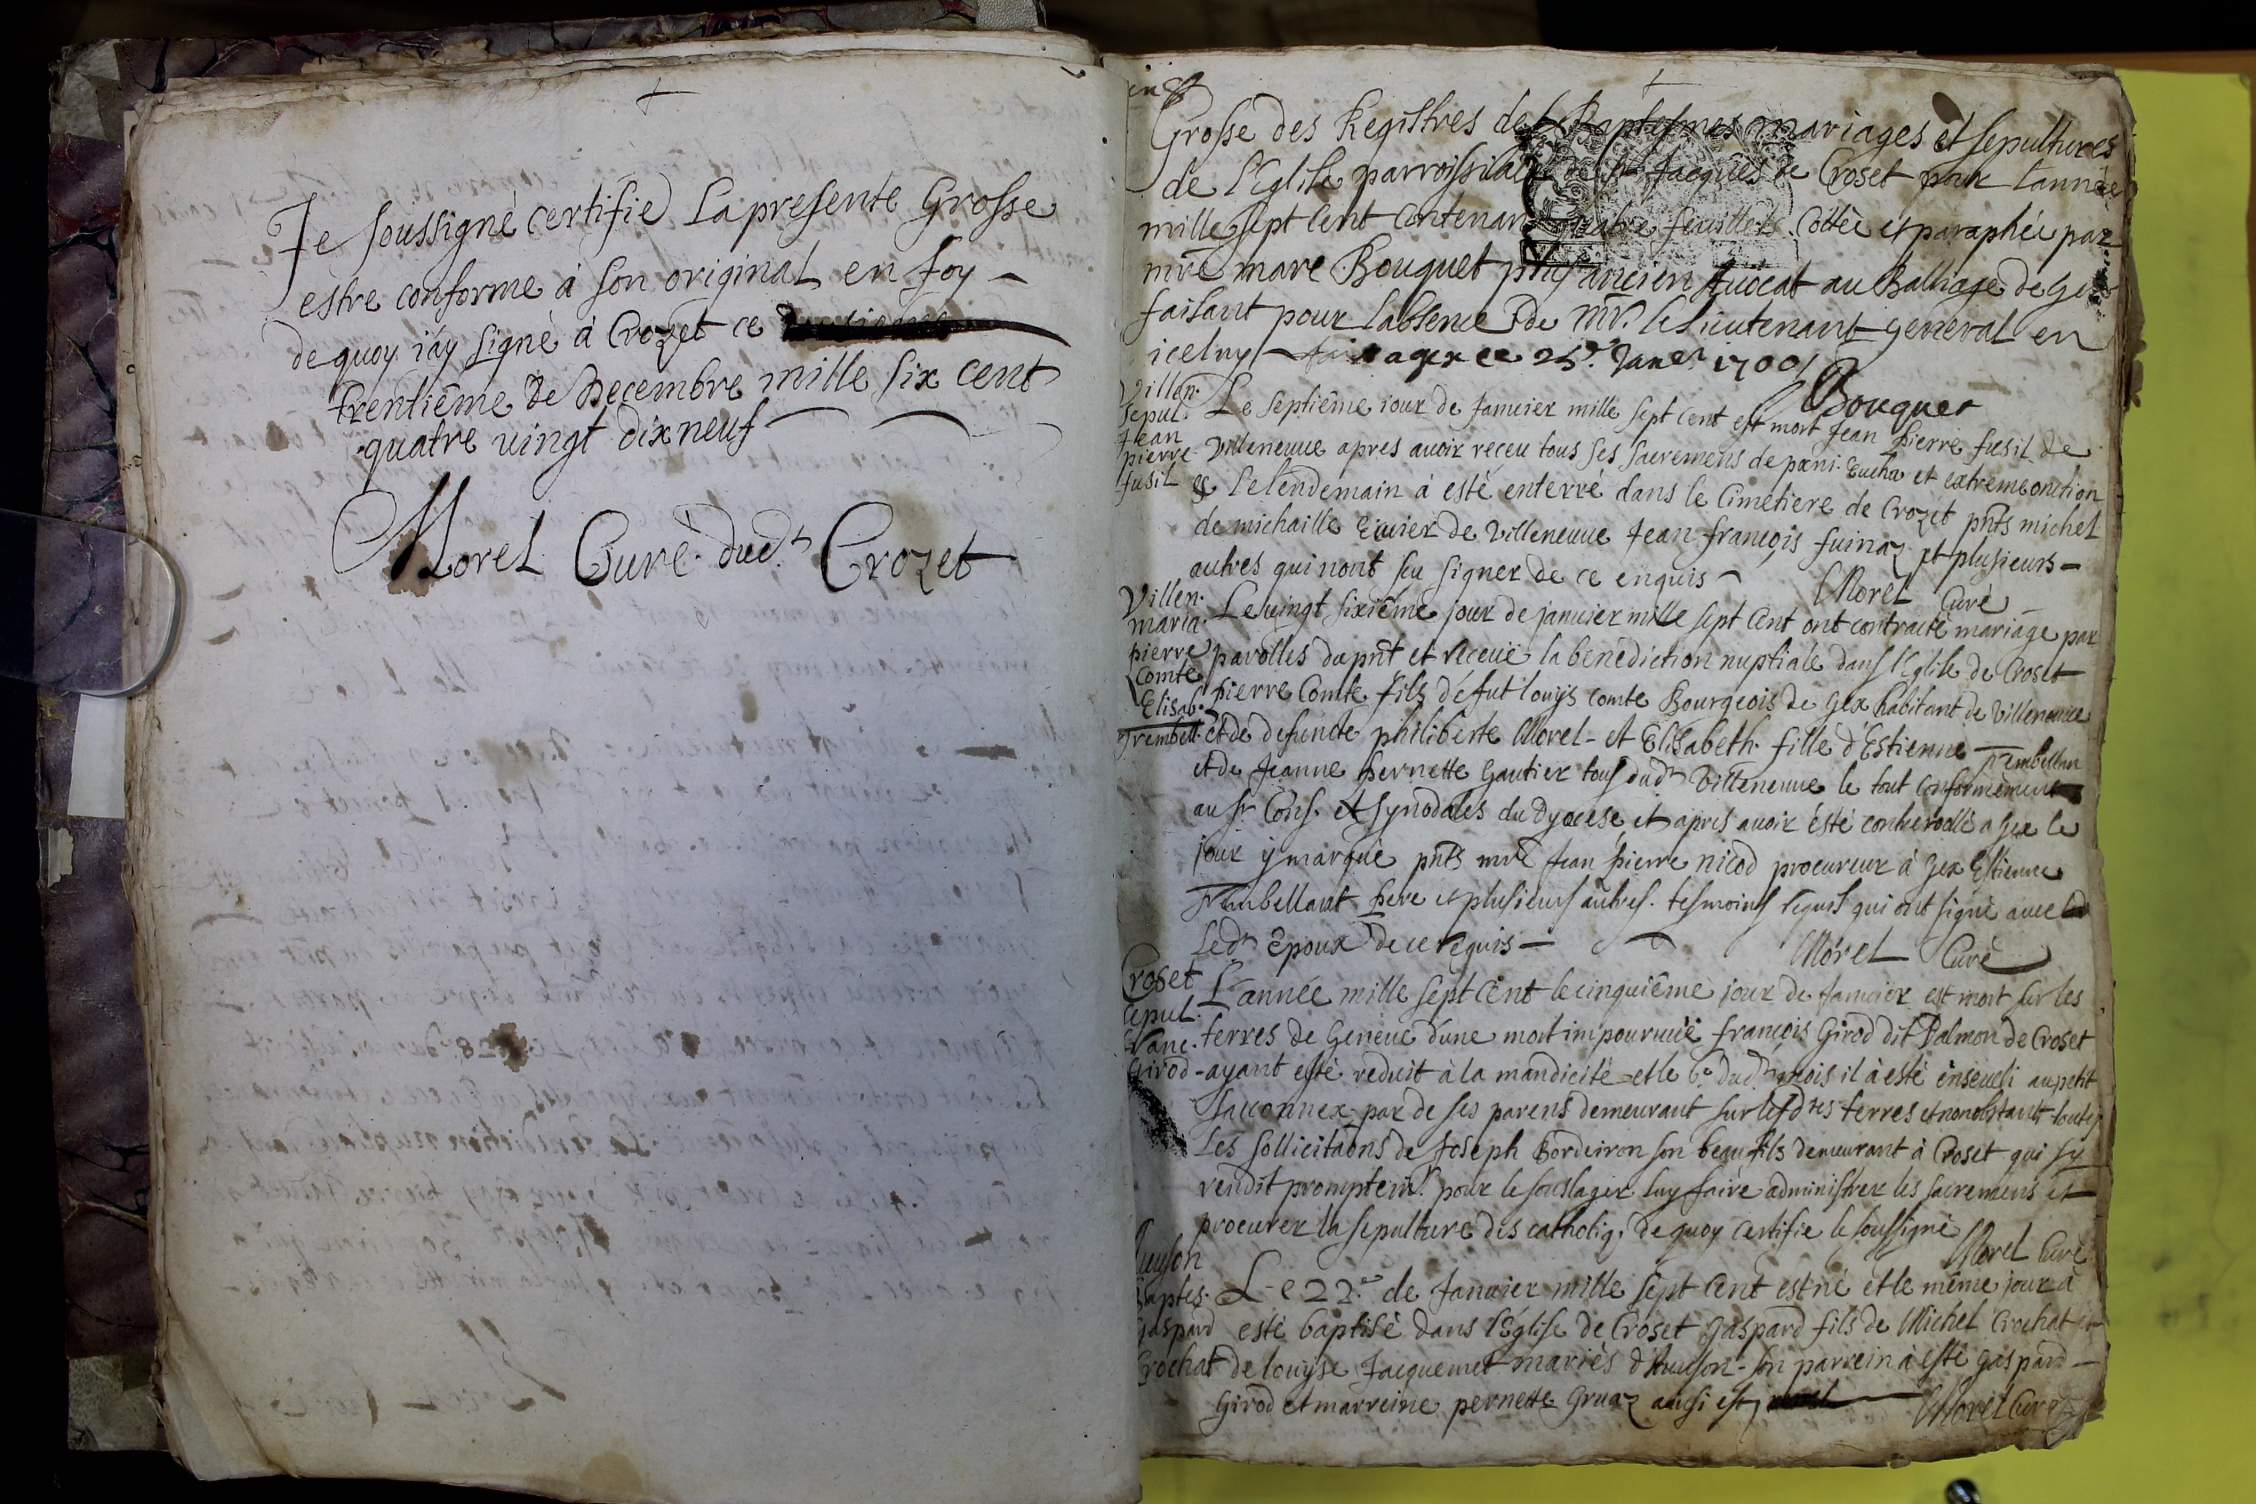 Je soussigné certifie La presente Grosse
estre conforme à son original en foy
de quoy i'ay signé à Crozet ce
trentième de Decembre mille six cent
quatre vingt dixneuf
Morel Curé dud.t Crozet
Grosse des Registres des Baptesmes mariages et sepultures
de l'Eglise parroissialle de St Jacques de Croset pour l'année
mille sept cent contenant quatre feuillets Cottée et paraphée par
mre marc Bouquet plus ancien Avocat au Balliage de Gex
faisant pour l'absence de Mr. le Lieutenant general en
iceluy fait a gex ce 25.e Janer 1700
Bouquet
Villen.
sepul.
Jean
pierre
fusil
Le septième iour de Janvier mille sept cent est mort Jean pierre fusil de
Villeneuve apres avoir receu tous ses sacremens de pœni. Eucha et extremeonction
et Lelendemain à esté enterré dans le Cimetiere de Crozet pnts michel
de michaille Evvier de Villeneuve Jean françois fuinaz et plusieurs
autres qui nont sçu signer de ce enquis
Morel Curé
Villen.
maria.
pierre
Comte
Elisab.
Trembell.
Le vingt sixième jour de janvier mille sept Cent ont contracté mariage par
parolles du pnt et receüe la benediction nuptiale dans l'Eglise de Croset
pierre Comte fils de fut louys comte Bourgeois de Gex habitant de Villeneuve
et de defuncte philiberte Morel et Elisabeth fille d'Estienne Trembellan
et de Jeanne pernette Gautier tous dudt Villeneuve le tout conformement
au St Conc. et synodales du Dyocese et apres avoir ésté conterollé a Gex le
jour y marqué pnts mre Jean pierre nicod procureur à Gex Estienne
Trembellant pere et plusieurs autres tesmoins requis qui ont signé avec
Ledt Epoux de ce requis
Morel Curé
Croset
sepul.
Franc.
Girod
L'année mille sept cent le cinquième jour de Janvier est mort sur les
terres de Geneve d'une mort impourvüe françois Girod dit Dalmon de Croset
ayant esté reduit à la mandicité et le 6.e dudt mois il à esté enseveli au petit
Sacconnex par de ses parens demeurant sur lesdtes terres et nonobstant toutes
Les sollicitaõns de Joseph Bordeiron son beaufils demeurant à Croset qui s'y
rendit promptemt. pour le souslager luy faire administrer les sacremens et
procurer la sepulture des catholiq. de quoy certifie le soussigné
Morel Curé
Avuson
Baptes.
Gaspard
Crochat
Le 22.e de Janvier mille sept cent est né et le même jour à
esté baptisé dans l'Église de Croset Gaspard fils de Michel Crochat et
de louyse Jacquemet mariés d'Avuson son parrein à esté Gaspard
Girod et marreine pernette Gruaz ainsi est
Morel Curé